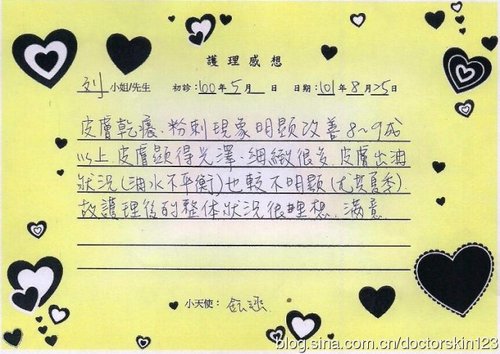 護理感想
刘 小姐/先生 初診:100年5月 日 日期:101年8月25日
皮膚乾癢、粉刺現象明顯改善8~9成
以上,皮膚顯得光澤、細緻很多,皮膚出油
狀況(油水不平衡)也較不明顯(尤其夏季)
故護理後的整体狀況很理想、滿意
小天使:
blog.sina.com.cn/doctorskin123